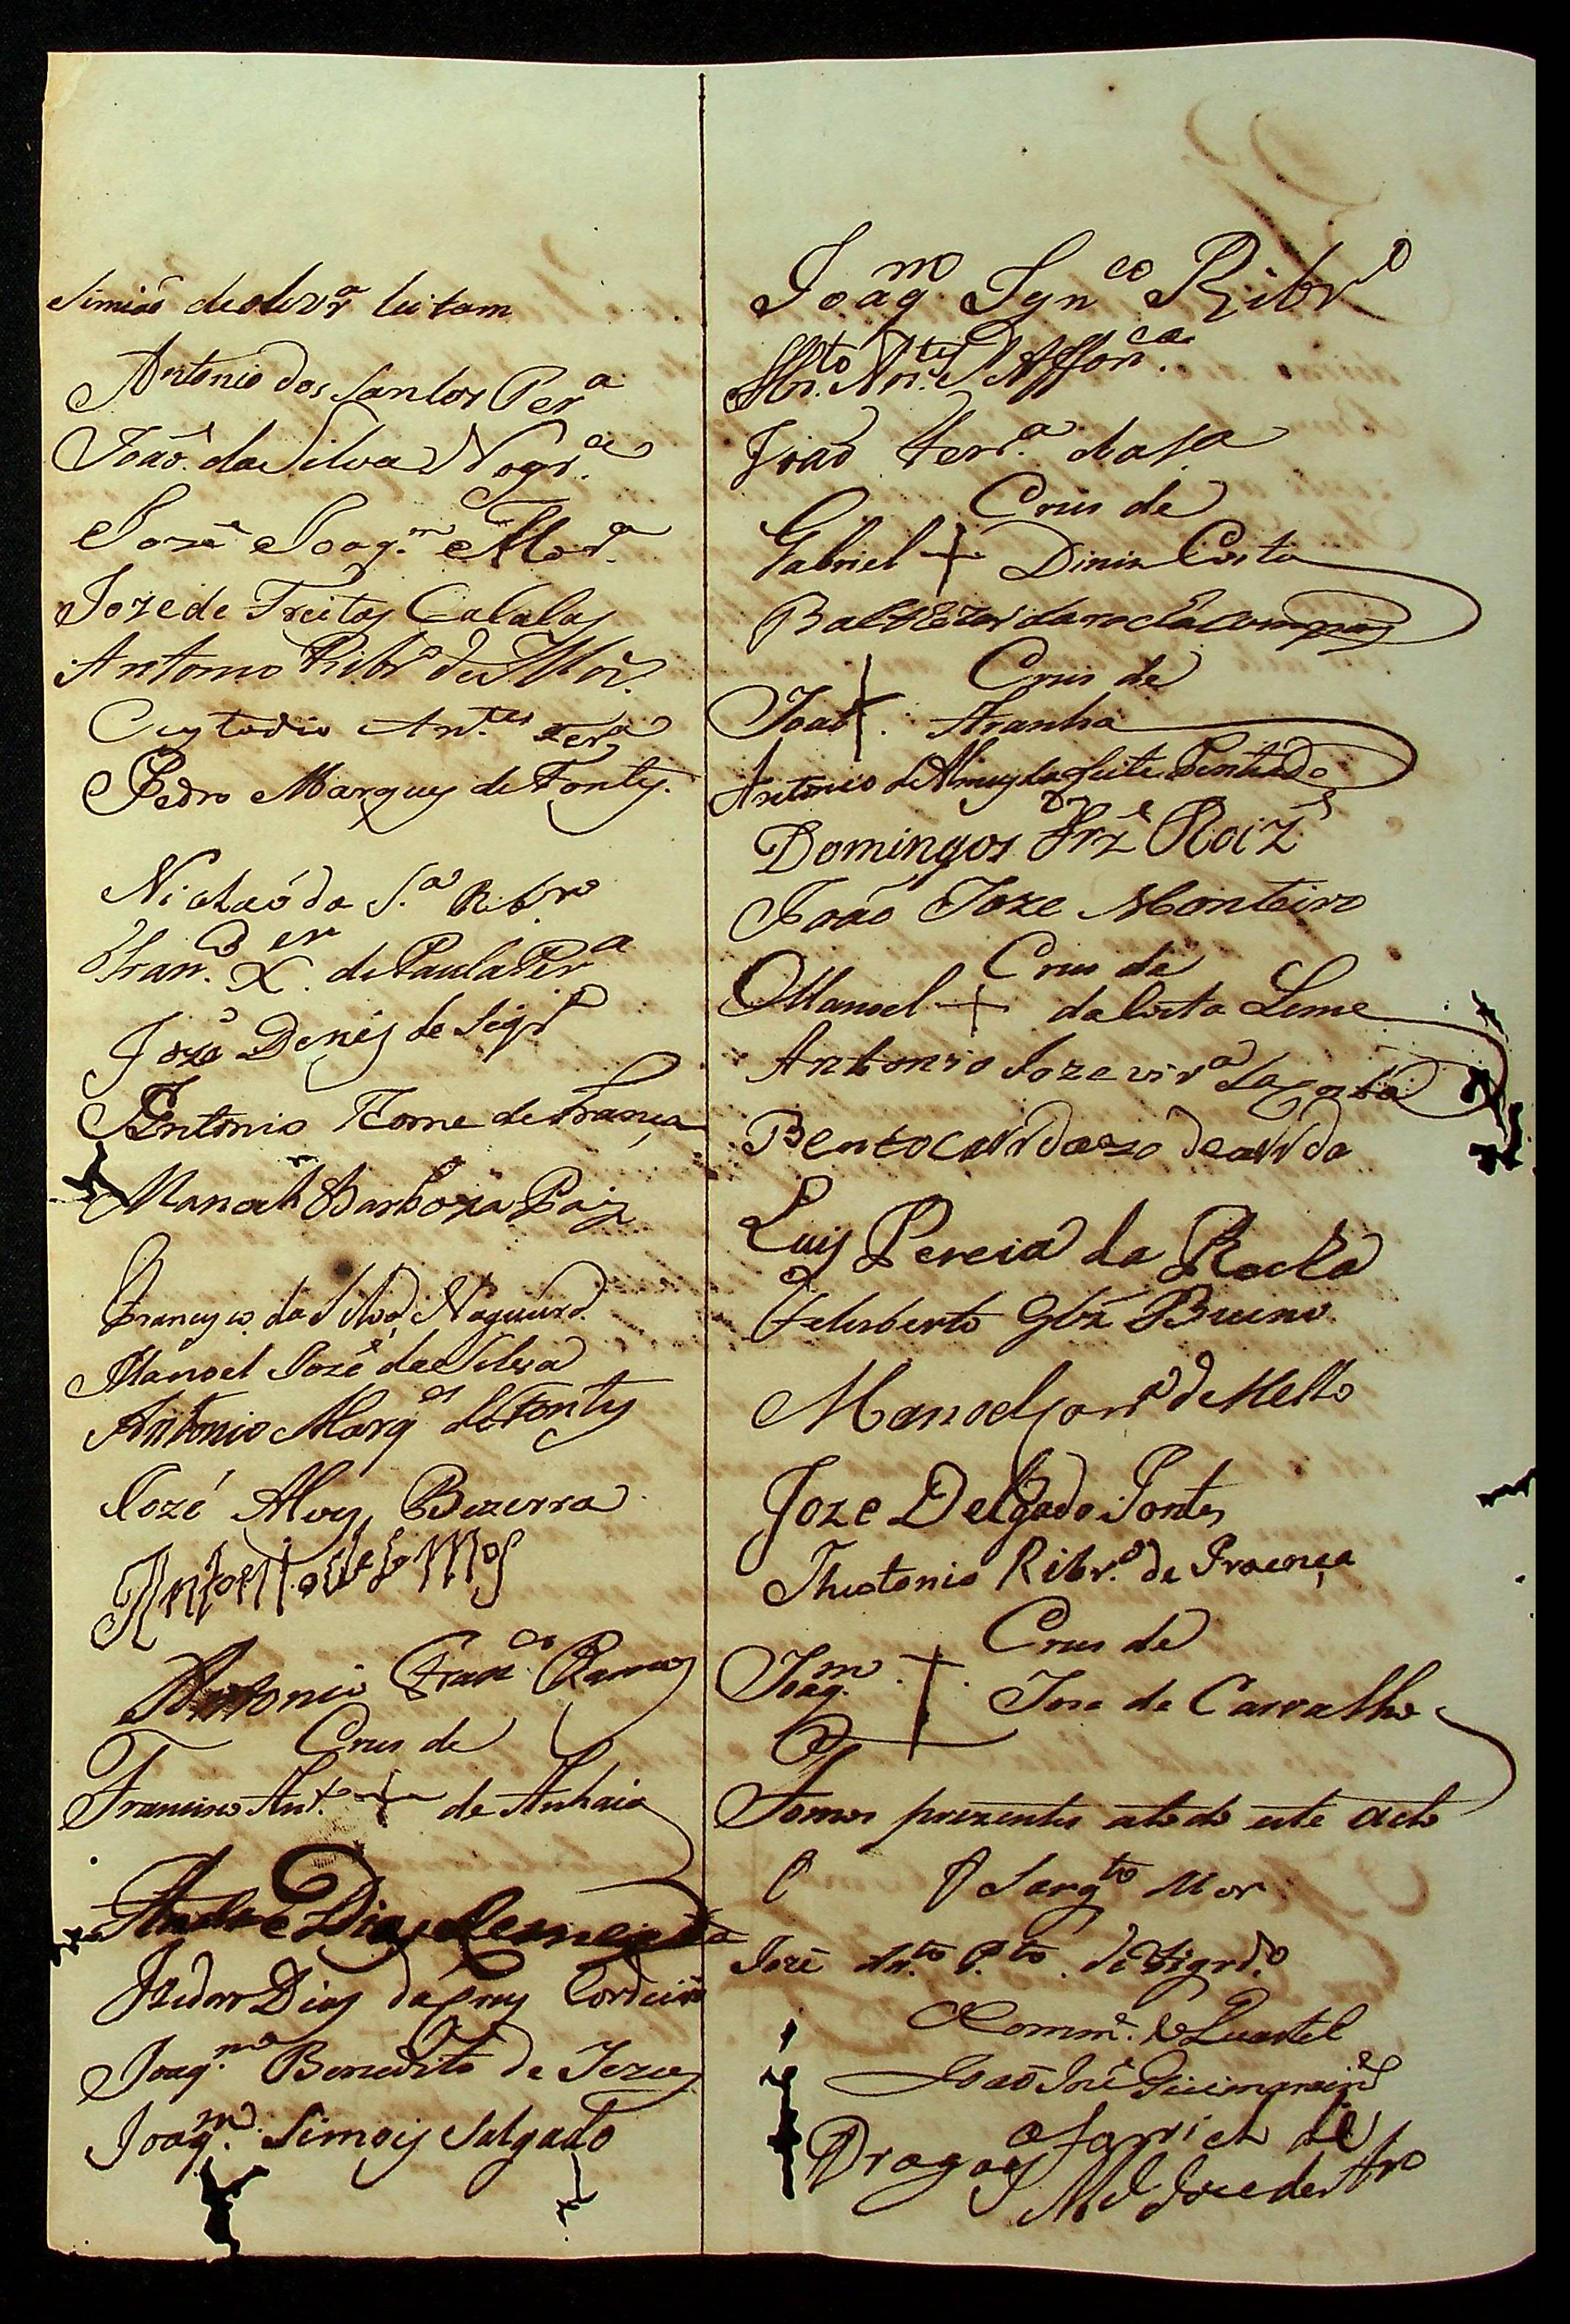 Simiaõ deolivrª leitam
Antonio dos Santos Perª
Joaõ da Silva Nogrª
Jozé Joaqm Morª
Joze de Freitas Calalas
Antonio Ribrº de Mor.
Custodio Antes Ferª
Pedro Marques de Fontes.
Nicolaó da S.ª Ribrº
Fran.co X.er de Paula Perª
Joze Deniz de Siqrª
Antonio Tome de França
Manoel Barboza Paiz
Francisco da Silvª Nogueirª
Manoel Jozé da Silva
Antonio Marqes de Fontes
Jozé Alvez Bezerra
Antonio de Lemos
Antonio Franco Ramos
Crus de
Francisco Ant.º + de Anhaia
Andre Dias de
Izidoro Dias da Cruz Cordeiro
Joaq.m Benedito de Jezus
Joaq.m Simois Salgado
Joaqm Ignco Ribrº
Joaõ Ferrª da Sª
Crus de
Gabriel + Diniz Costa
Baltezar da rocha Compos
Crus de
Joaõ + Aranha
Antonio de Almeyda Leite Penteado
Domingos Frz Roiz
Joaõ Joze Monteiro
Crus de
Manoel + da Costa Leme
Antonio Joze virª da Costa
Bento cardozo de
Luis Pereia da Rocha
Felisberto Glz Bueno
Manoel de Mello
Joze Delgado Pontes
Theotonio Ribr.º de Proença
Crus de
Joaq.m + Joze de Carvalho
Fomos prezentes atodo este acto
O Sargto Mor
Jozé An.to P.to de Figrd.º
Comm.e do Quartel
Joaõ Jozé Guimarains
Dragoes